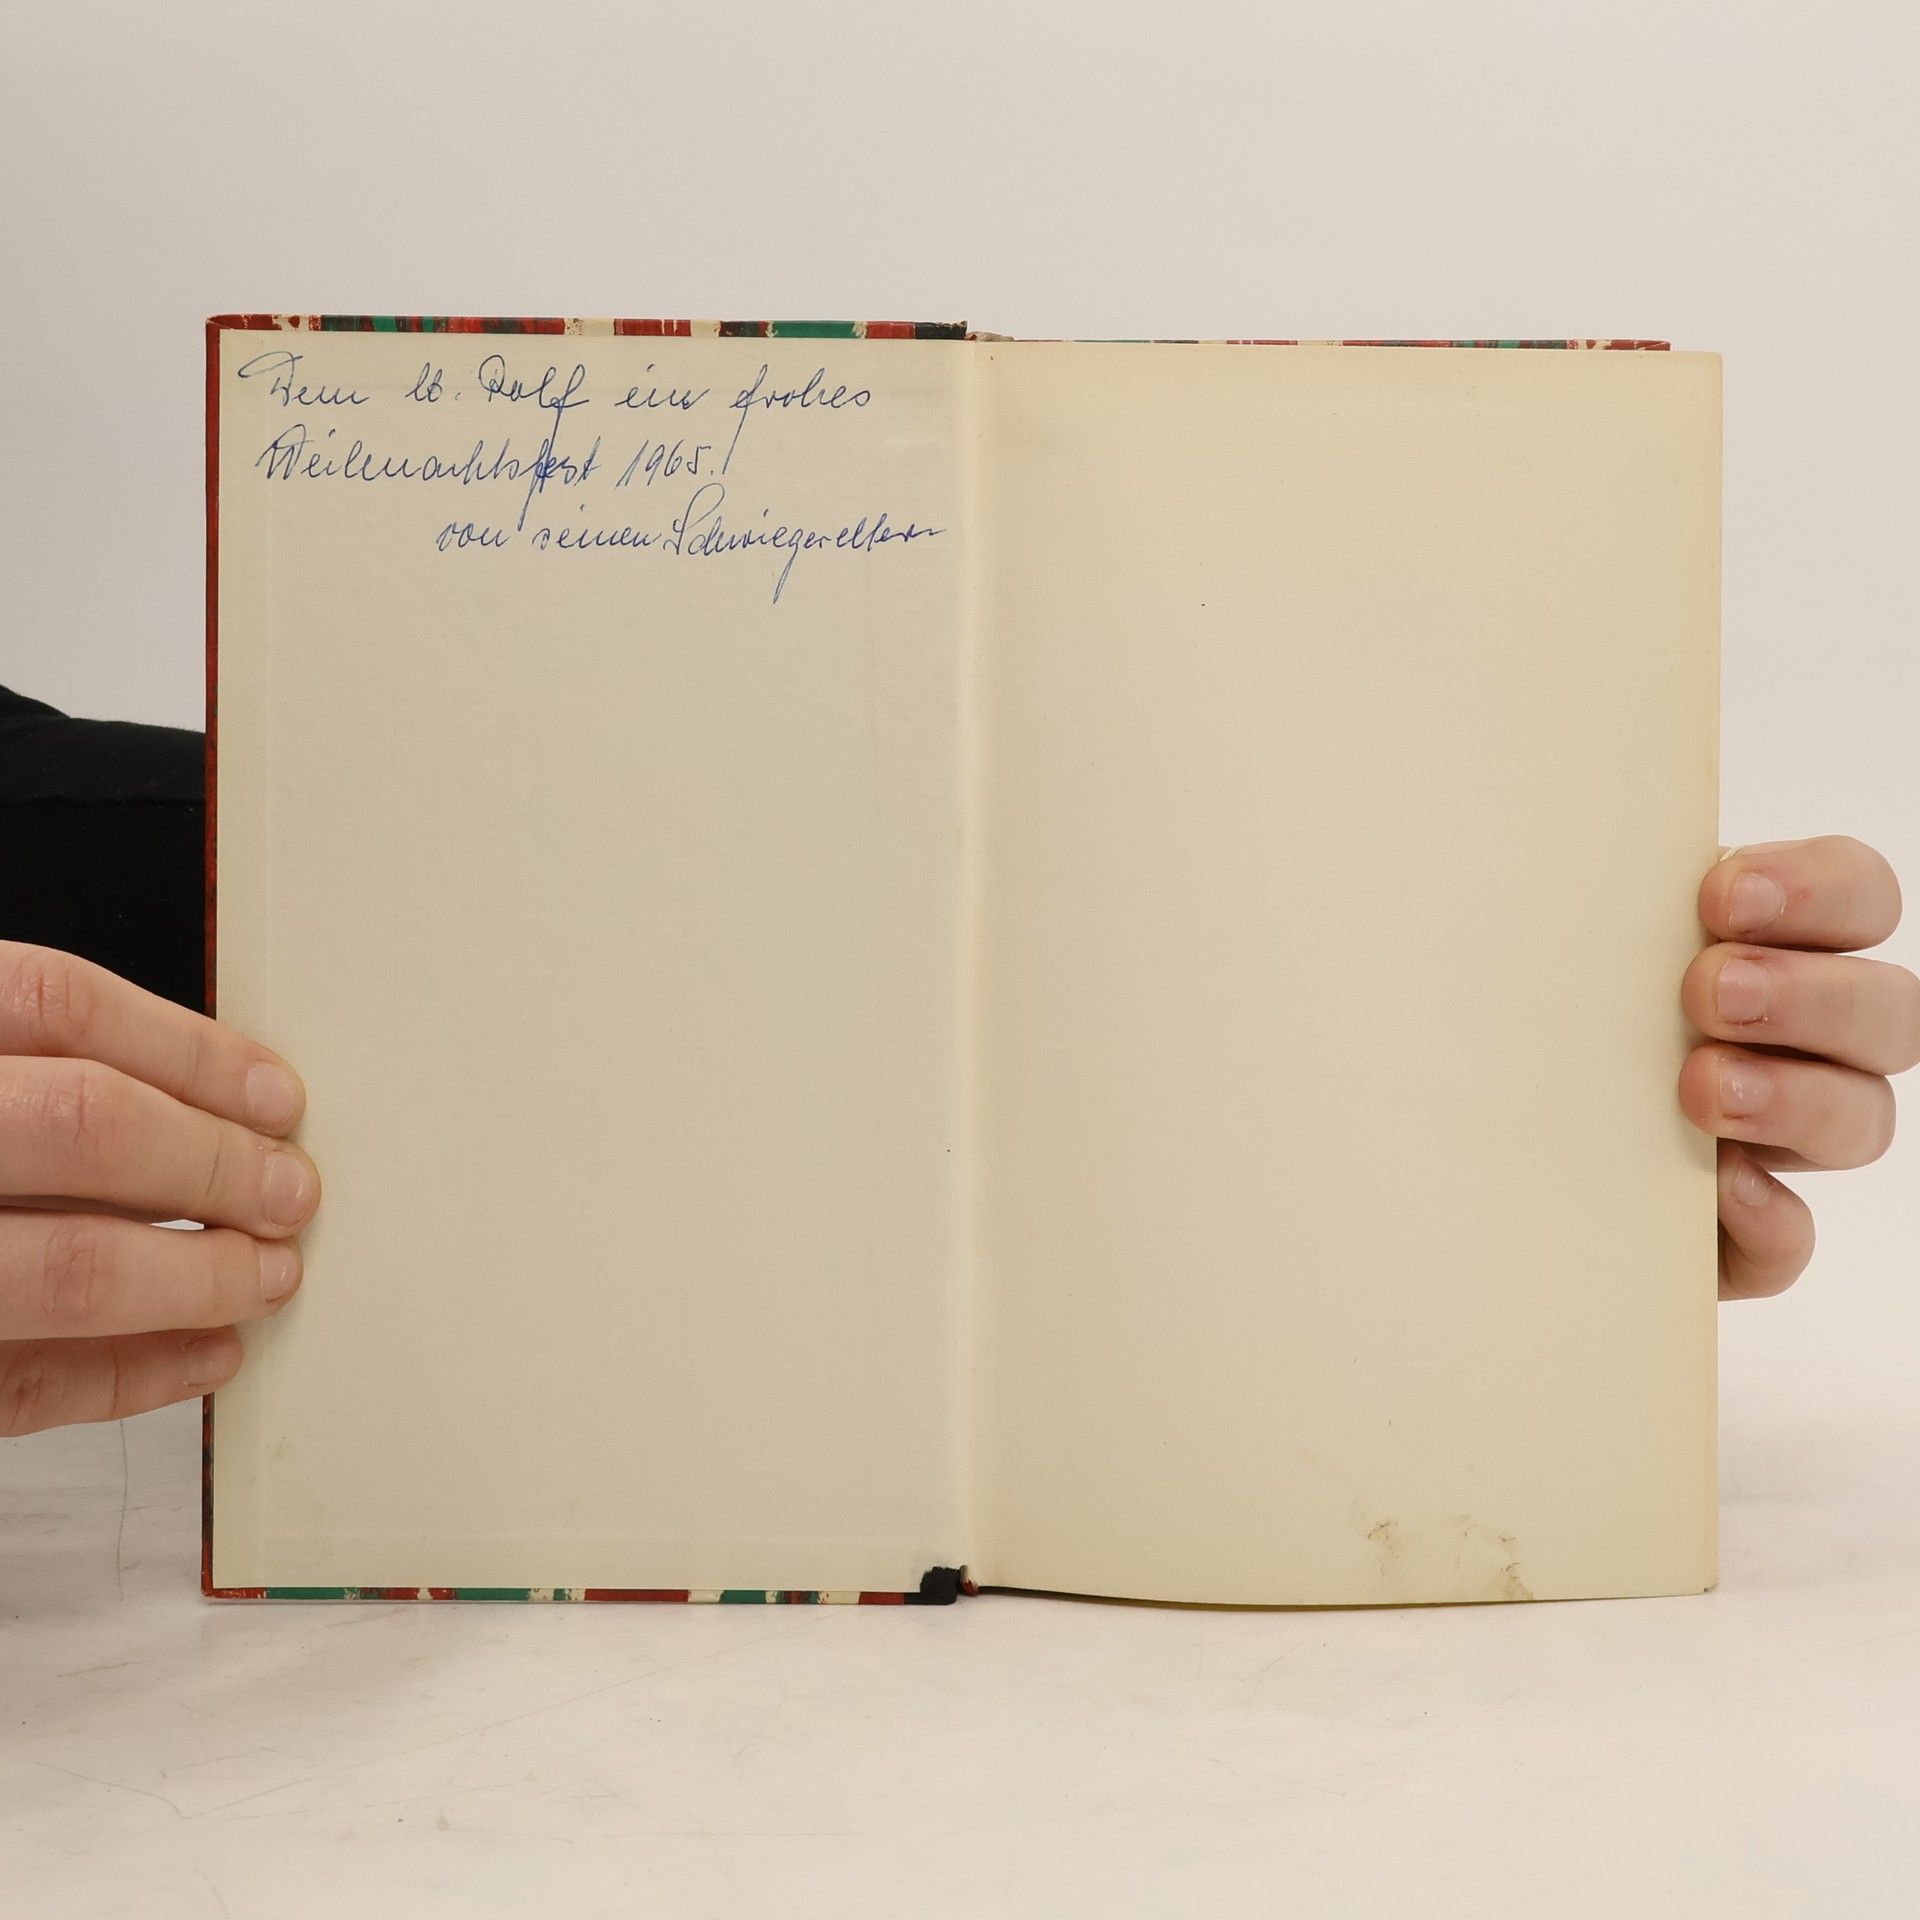 Dem lb. Rolf ein frohes
Weihnachtsfest 1965.
von seinen Schwiegereltern